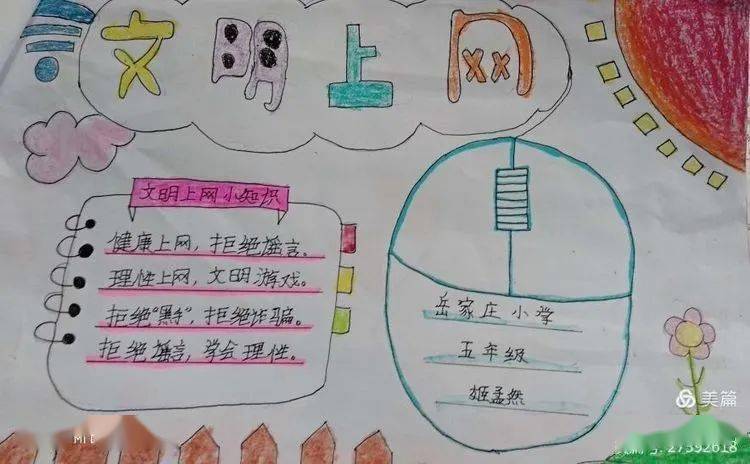 文明上网
文明上网小知识
健康上网，拒绝谣言。
理性上网，文明游戏。
拒绝“黑客”，拒绝诈骗。
拒绝谣言，学会理性。
岳家庄小学
五年级
姬孟然
美篇
27592618